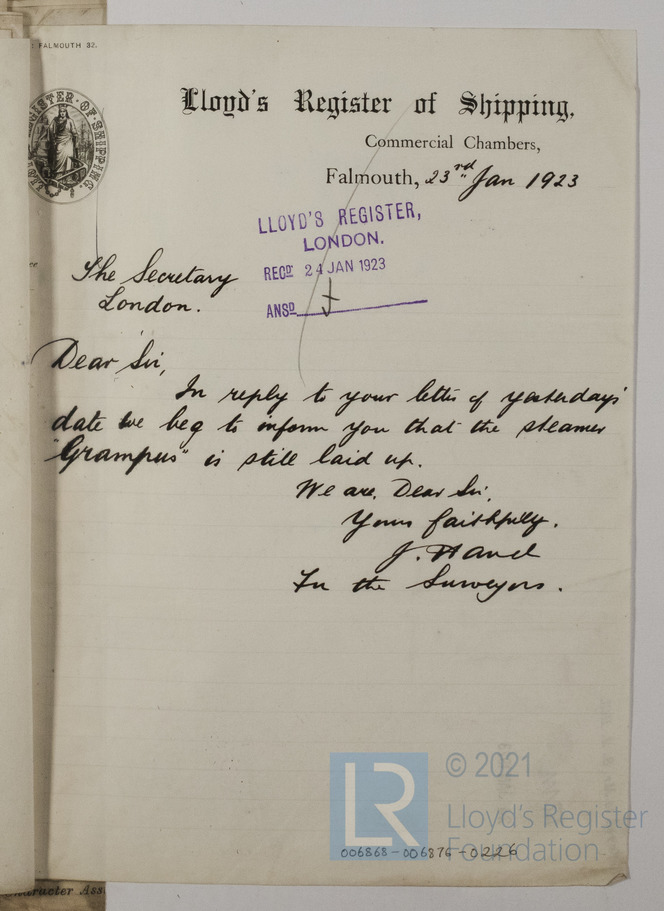 FALMOUTH 32.
Lloyd's Register of Shipping,
Commercial Chambers,
Falmouth, 23rd Jan 1923
LLOYD'S REGISTER,
LONDON.
RECD 24 JAN 1923
ANSD
The Secretary
London.
Dear Sir,
In reply to your letter of yesterday's
date we beg to inform you that the steamer
"Grampus" is still laid up.
We are, Dear Sir,
Yours faithfully.
J. Hand
For the Surveyors.
© 2021
LR
Lloyd's Register
Foundation
006868-006876-0226
Character Ass